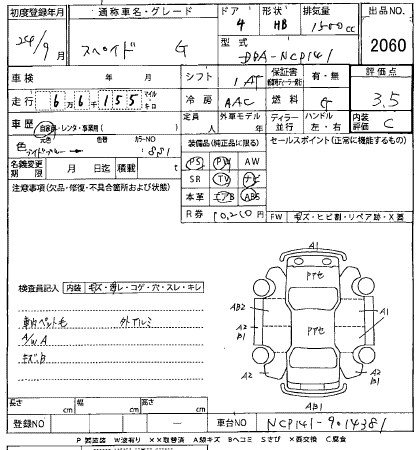 初度登録年月 通称車名・グレード ドア 形状 排気量 出品NO.
24/9月 スペイド G 4 HB 1500cc 2060
型式 DBA-NCP141
車検 年 月 シフト 1 AT 保証書 有・無 評価点
走行 6万6千155 マイル・キロ 冷房 AAC 燃料 G 3.5
車歴 自家用・レンタ・事業用( ) 定員 人 外車モデル ディーラー・並行 ハンドル 左・右 内装評価 C
色 元色 色替 カラーNO 8S1 装備品(純正品に限る) セールスポイント(正常に機能するもの)
名義変更期限 月 日迄 積載 t PS PW AW
注意事項(欠品・修復・不具合箇所および状態) SR TV ナビ
本革 エアB ABS
R券 10,210円 FW キズ・ヒビ割・リペア跡・X要
A1
Pナセ
検査員記入 内装 キズ・汚れ・コゲ・穴・スレ・キレ
AB2 A1
車内ペット毛 外アルミ
Pナセ
A2 B1
A/W A
A2 B1
キズ、凹
A2 A2
AB1
長さ cm 幅 cm 高さ cm
登録NO 車台NO NCP141-9014381
P 要塗装 W波有り ××取替済 A線キズ Bヘコミ Sさび ×要交換 C腐食